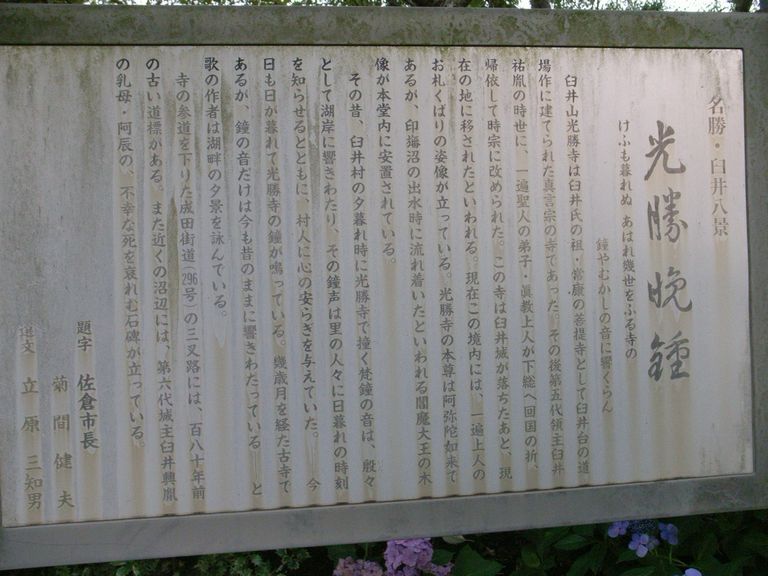 名勝・臼井八景
光勝晩鍾
けふも暮れぬ あはれ幾世をふる寺の
鐘やむかしの音に響くらん
臼井山光勝寺は臼井氏の祖・常康の菩提寺として臼井台の道
場作に建てられた真言宗の寺であった。その後第五代領主臼井
祐胤の時世に、一遍聖人の弟子・眞教上人が下総へ回国の折、
帰依して時宗に改められた。この寺は臼井城が落ちたあと、現
在の地に移されたといわれる。現在この境内には、一遍上人の
お札くばりの姿像が立っている。光勝寺の本尊は阿弥陀如来で
あるが、印旛沼の出水時に流れ着いたといわれる閻魔大王の木
像が本堂内に安置されている。
その昔、臼井村の夕暮れ時に光勝寺で撞く梵鐘の音は、殷々
として湖岸に響きわたり、その鐘声は里の人々に日暮れの時刻
を知らせるとともに、村人に心の安らぎを与えていた。 今
日も日が暮れて光勝寺の鐘が鳴っている。幾歳月を経た古寺で
あるが、鐘の音だけは今も昔のままに響きわたっている と
歌の作者は湖畔の夕景を詠んでいる。
寺の参道を下りた成田街道(296号)の三叉路には、百八十年前
の古い道標がある。また近くの沼辺には、第六代城主臼井興胤
の乳母・阿辰の、不幸な死を哀れむ石碑が立っている。
題字 佐倉市長
菊間健夫
選文 立原三知男